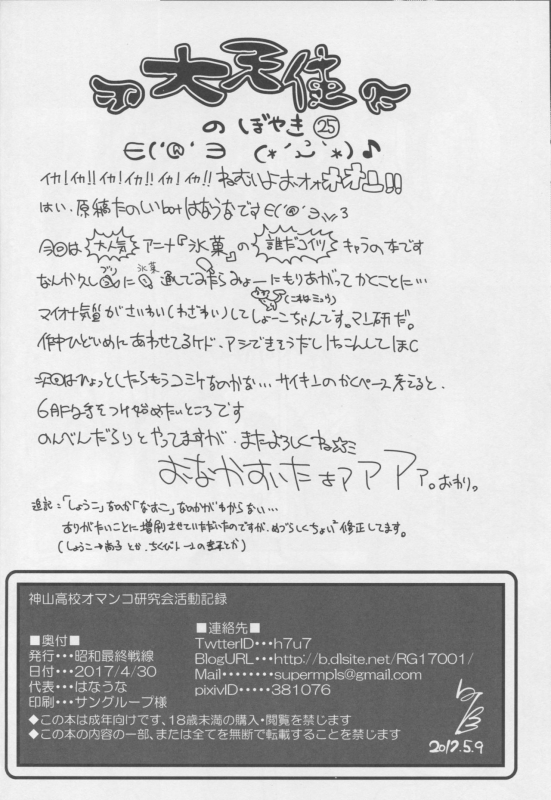 大天使
のぼやき㉕
∈('⓪'∋ (*´ご`*)♪
イカ!イカ!!イカ!イカ!!イカ!イカ!! ねむいよおォォオオユ!!
はい、原稿たのしいbotはなうなです∈('⓪'∋ 3
今回は大人気アニメ『氷菓』の誰だコイツキャラの本です
なんか久しぶりに氷菓通してみたらみょーにもりあがってかくことに…
(これはミョウ)
マイナー気質がさいわい(わざわい)してしょーこちゃんです。マン研だ。
作中ひどいめにあわせてるケド、アシできそうだしけっこんしてほC
次回はひょっとしたらもうコミケなのかな…サイキンのかくペースを考えると、
6月から手をつけ始めたいところです
のんべんだらりとやってますが、またよろしくね☆ミ
おなかすいたよアアアァ。おわり。
追記:「しょうこ」なのか「なおこ」なのかがわからない…
ありがたいことに増刷させていただいたのですが、めづらしくちょい²修正してます。
(しょうこ→尚子とか、ちくびトーンの
神山高校オマンコ研究会活動記録
■奥付■
発行・・・昭和最終戦線
日付・・・2017/4/30
代表・・・はなうな
印刷・・・サングループ様
■連絡先■
TwtterID・・・h7u7
BlogURL・・・http://b.dlsite.net/RG17001/
Mail・・・・・・・・supermpls@gmail.com
pixivID・・・・・381076
◆この本は成年向けです、18歳未満の購入・閲覧を禁じます
◆この本の内容の一部、または全てを無断で転載することを禁じます
2017.5.9